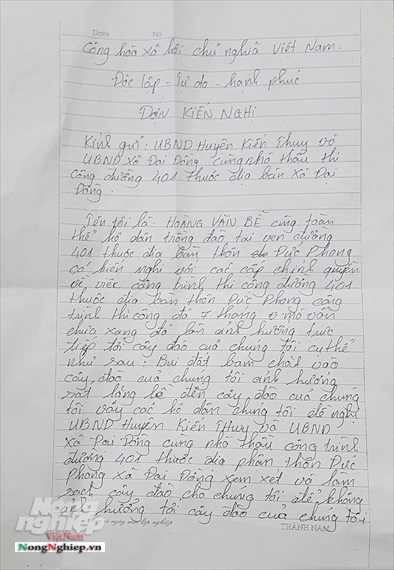 Date No
Cộng hòa xã hội chủ nghĩa Việt Nam.
Độc lập - Tự do - hạnh phúc
ĐƠN KIẾN NGHỊ
Kính gửi: UBND Huyện Kiến Thụy và
UBND xã Đại Đồng cùng nhà thầu thi
công đường 401 thuộc địa bàn xã Đại
Đồng.
Tên tôi là: HOÀNG VĂN BỂ cùng toàn
thể hộ dân trồng đào tại ven đường
401 thuộc địa bàn thôn Đức Phong
có kiến nghị với các cấp chính quyền
về việc công trình thi công đường 401
thuộc địa bàn thôn Đức Phong công
trình thi công đã 7 tháng mà vẫn
chưa xong đã làm ảnh hưởng trực
tiếp tới cây đào của chúng tôi cụ thể
như sau: Bụi đất bám chặt vào
cây đào của chúng tôi ảnh hưởng
rất lớn đến cây đào của chúng
tôi vậy các hộ dân chúng tôi đề nghị
UBND Huyện Kiến Thụy và UBND
xã Đại Đồng cùng nhà thầu công trình
đường 401 thuộc địa phận thôn Đức
Phong xã Đại Đồng xem xét và làm
sạch cây đào cho chúng tôi để không
ảnh hưởng tới cây đào của chúng tôi
THÀNH NAM
Nông nghiệp
Việt Nam
NongNghiep.vn